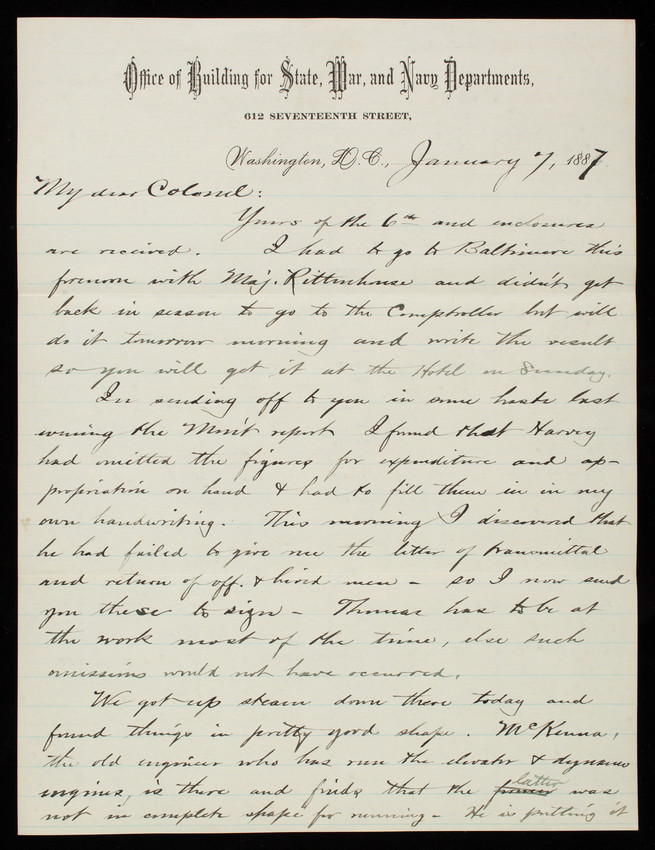 Office of Building for State, War, and Navy Departments,
612 SEVENTEENTH STREET,
Washington, D.C., January 7, 1887
My dear Colonel:
Yours of the 6th and enclosures
are received. I had to go to Baltimore this
forenoon with Maj. Rittenhouse and didn't get
back in season to go to the Comptroller but will
do it tomorrow morning and write the result
so you will get it at the Hotel on Sunday.
In sending off to you in some haste last
evening the Mon't report I found that Harvey
had omitted the figures for expenditure and ap-
propriation on hand & had to fill them in in my
own handwriting. This morning I discovered that
he had failed to give me the letter of transmittal
and return of off. & hired men - so I now send
you these to sign - Thomas has to be at
the work most of the time, else such
omissions would not have occurred.
We got up steam down there today and
found things in pretty good shape. McKenna,
the old engineer who has run the elevator & dynamo
engines, is there and finds that the former latter was
not in complete shape for running - He is putting it